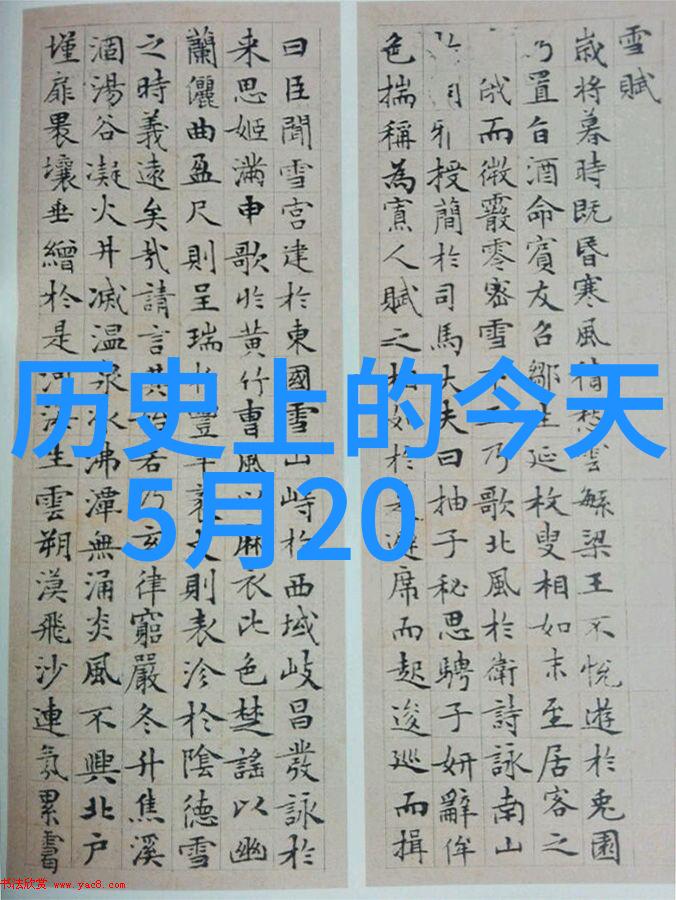 雪賦
歲將暮時既昏寒風積愁雲緐梁王不悅遊於兎園
乃置旨酒命賓友召鄒生延枚叟相如末至居客之
俄而微霰零密雪下王乃歌北風於衛詩詠南山
雅授簡於司馬大夫曰抽子秘思騁子妍辭侔
色揣稱為寡人賦之相如於是避席而起逡巡而揖
曰臣聞雪宮建於東國雪山峙於西域岐昌發詠於
来思姬滿申歌於黃竹曹風以麻衣比色楚謠以幽
蘭儷曲盈尺則呈瑞於豐年袤丈則表沴於陰德雪
之時義遠矣哉請言其始若乃玄律窮嚴冬升焦溪
涸湯谷凝火井滅温泉冰沸潭無涌炎風不興北戶
墐扉裸壤垂繒於是河海生雲朔漠飛沙連氛累靄
历史上的今天
5月20
书法欣赏 www.yac8.com